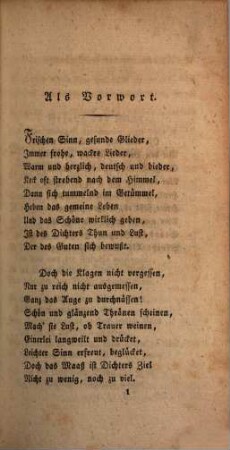 Als Vorwort.
Frischen Sinn, gesunde Glieder,
Immer frohe, wackre Lieder,
Warm und herzlich, deutsch und bieder,
Keck oft strebend nach dem Himmel,
Dann sich tummelnd im Getümmel,
Heben das gemeine Leben
Und das Schöne wirklich geben,
Ist des Dichters Thun und Lust,
Der des Guten sich bewußt.
Doch die Klagen nicht vergessen,
Nur zu reich nicht ausgemessen,
Ganz das Auge zu durchnässen!
Schön und glänzend Thränen scheinen,
Mach' sie Lust, ob Trauer weinen,
Einerlei langweilt und drücket,
Leichter Sinn erfreut, beglücket,
Doch das Maaß ist Dichters Ziel
Nicht zu wenig, noch zu viel.
1